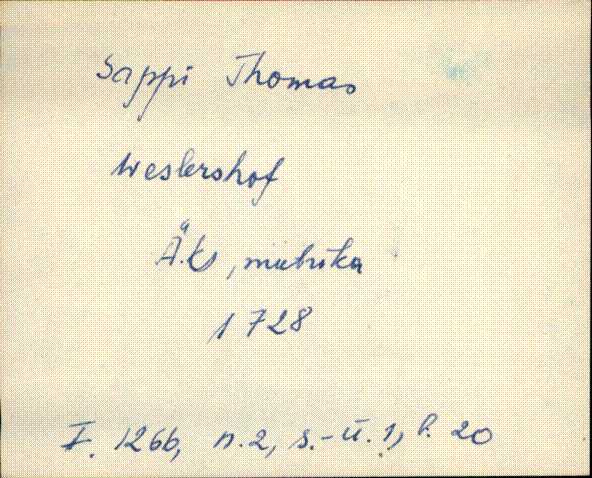 Sappi Thomas
Weslershof
Äks, meetrika
1728
F. 1266, n. 2, s.-ü. 1, l. 20